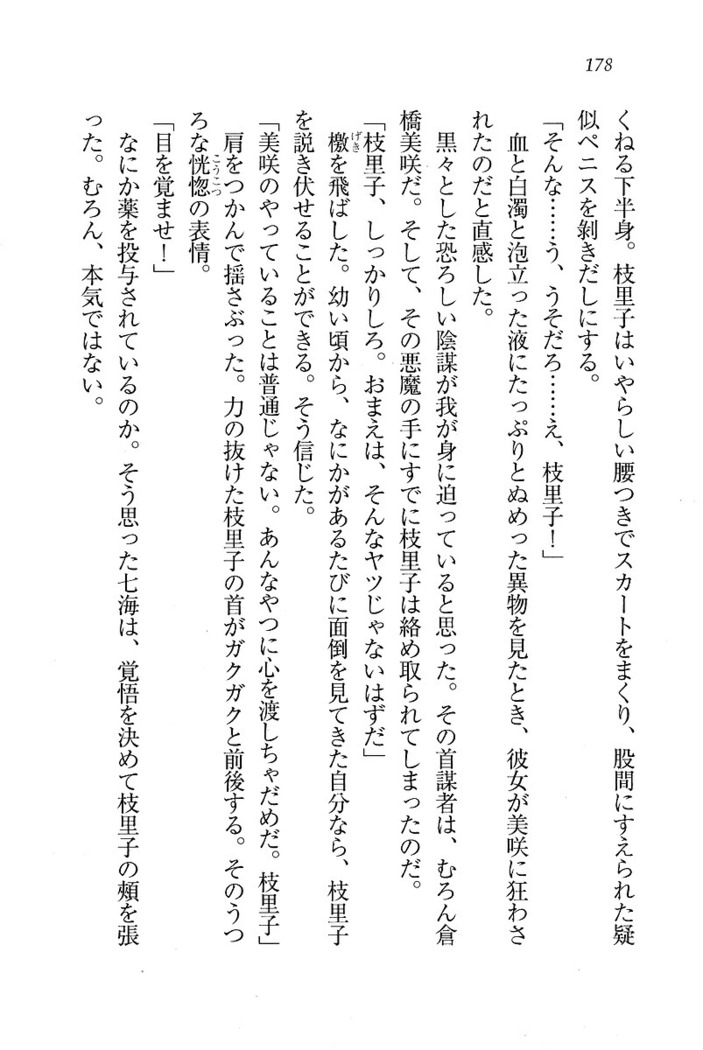 178
くねる下半身。枝里子はいやらしい腰つきでスカートをまくり、股間にすえられた疑
似ペニスを剝きだしにする。
「そんな……う、うそだろ……え、枝里子！」
血と白濁と泡立った液にたっぷりとぬめった異物を見たとき、彼女が美咲に狂わさ
れたのだと直感した。
黒々とした恐ろしい陰謀が我が身に迫っていると思った。その首謀者は、むろん倉
橋美咲だ。そして、その悪魔の手にすでに枝里子は絡め取られてしまったのだ。
「枝里子、しっかりしろ。おまえは、そんなヤツじゃないはずだ」
檄を飛ばした。幼い頃から、なにかがあるたびに面倒を見てきた自分なら、枝里子
げき
を説き伏せることができる。そう信じた。
「美咲のやっていることは普通じゃない。あんなやつに心を渡しちゃだめだ。枝里子」
肩をつかんで揺さぶった。力の抜けた枝里子の首がガクガクと前後する。そのうつ
ろな恍惚の表情。
こうこつ
「目を覚ませ！」
なにか薬を投与されているのか。そう思った七海は、覚悟を決めて枝里子の頰を張
った。むろん、本気ではない。